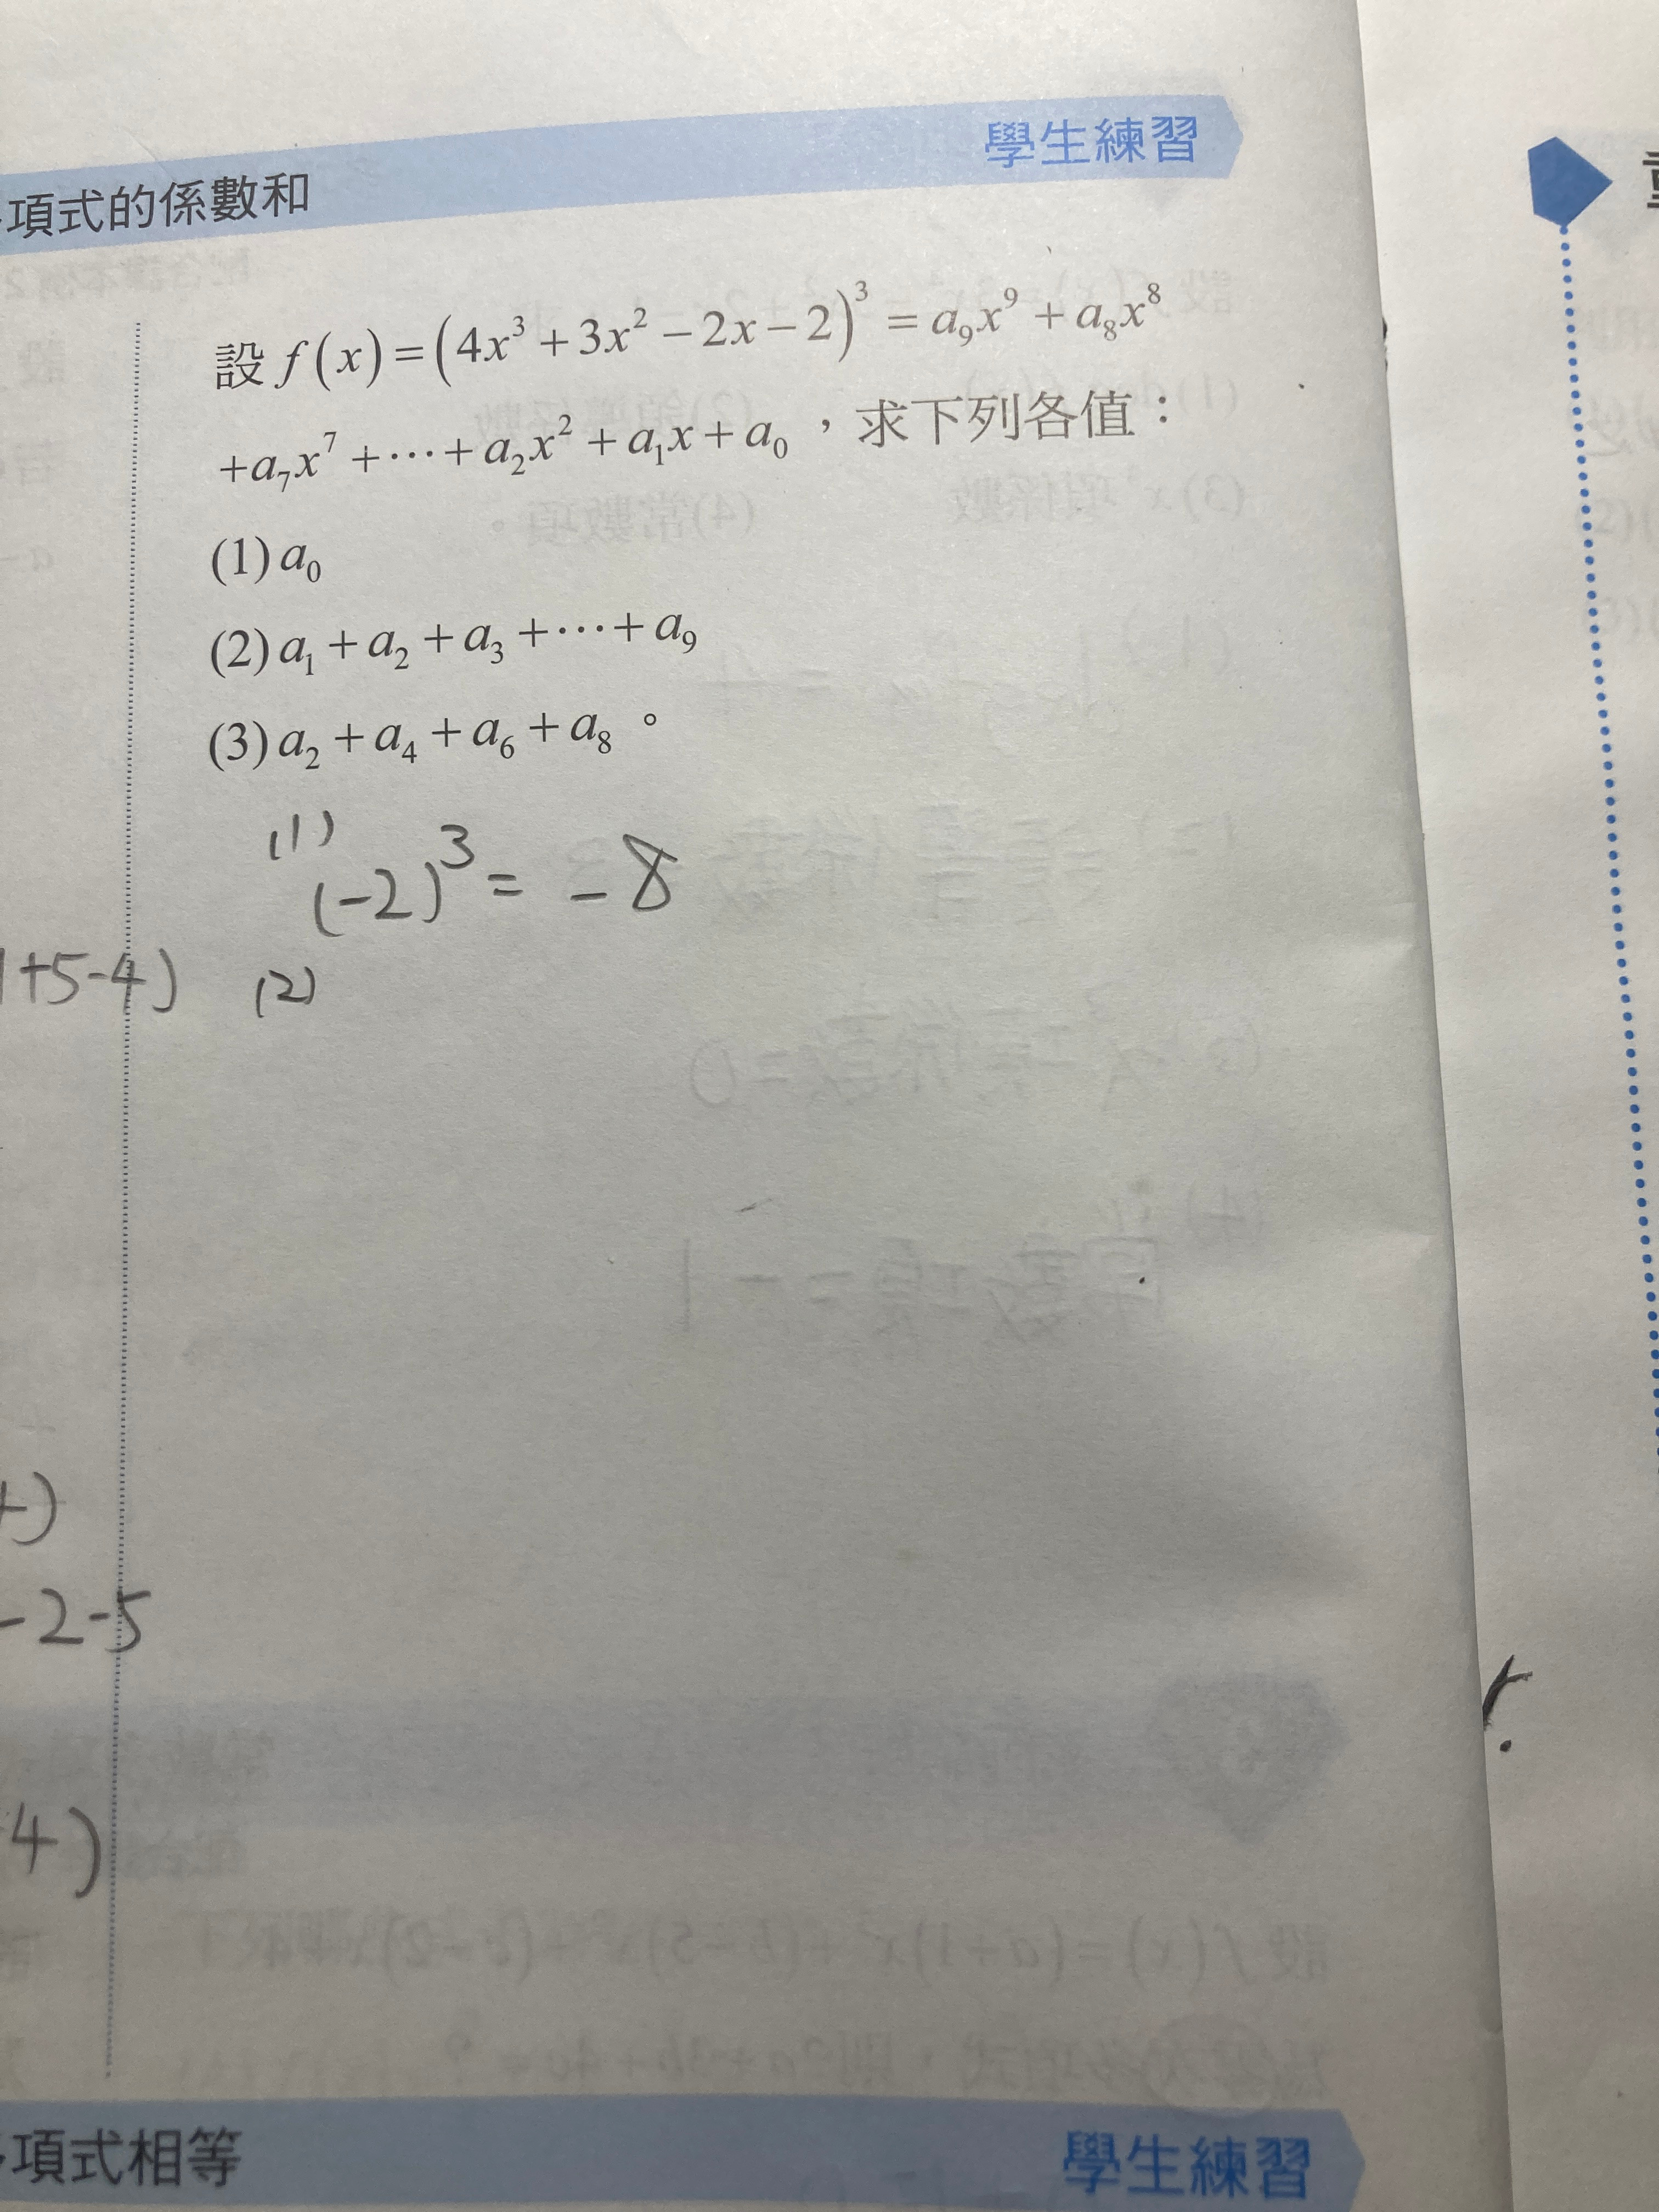 項式的係數和
學生練習
設 f(x)=(4x³+3x²−2x−2)³=a₉x⁹+a₈x⁸
+a₇x⁷+⋯+a₂x²+a₁x+a₀，求下列各值：
(1) a₀
(2) a₁+a₂+a₃+⋯+a₉
(3) a₂+a₄+a₆+a₈。
(1)
(-2)³= -8
1+5-4)
(2)
-2-5
4)
項式相等
學生練習